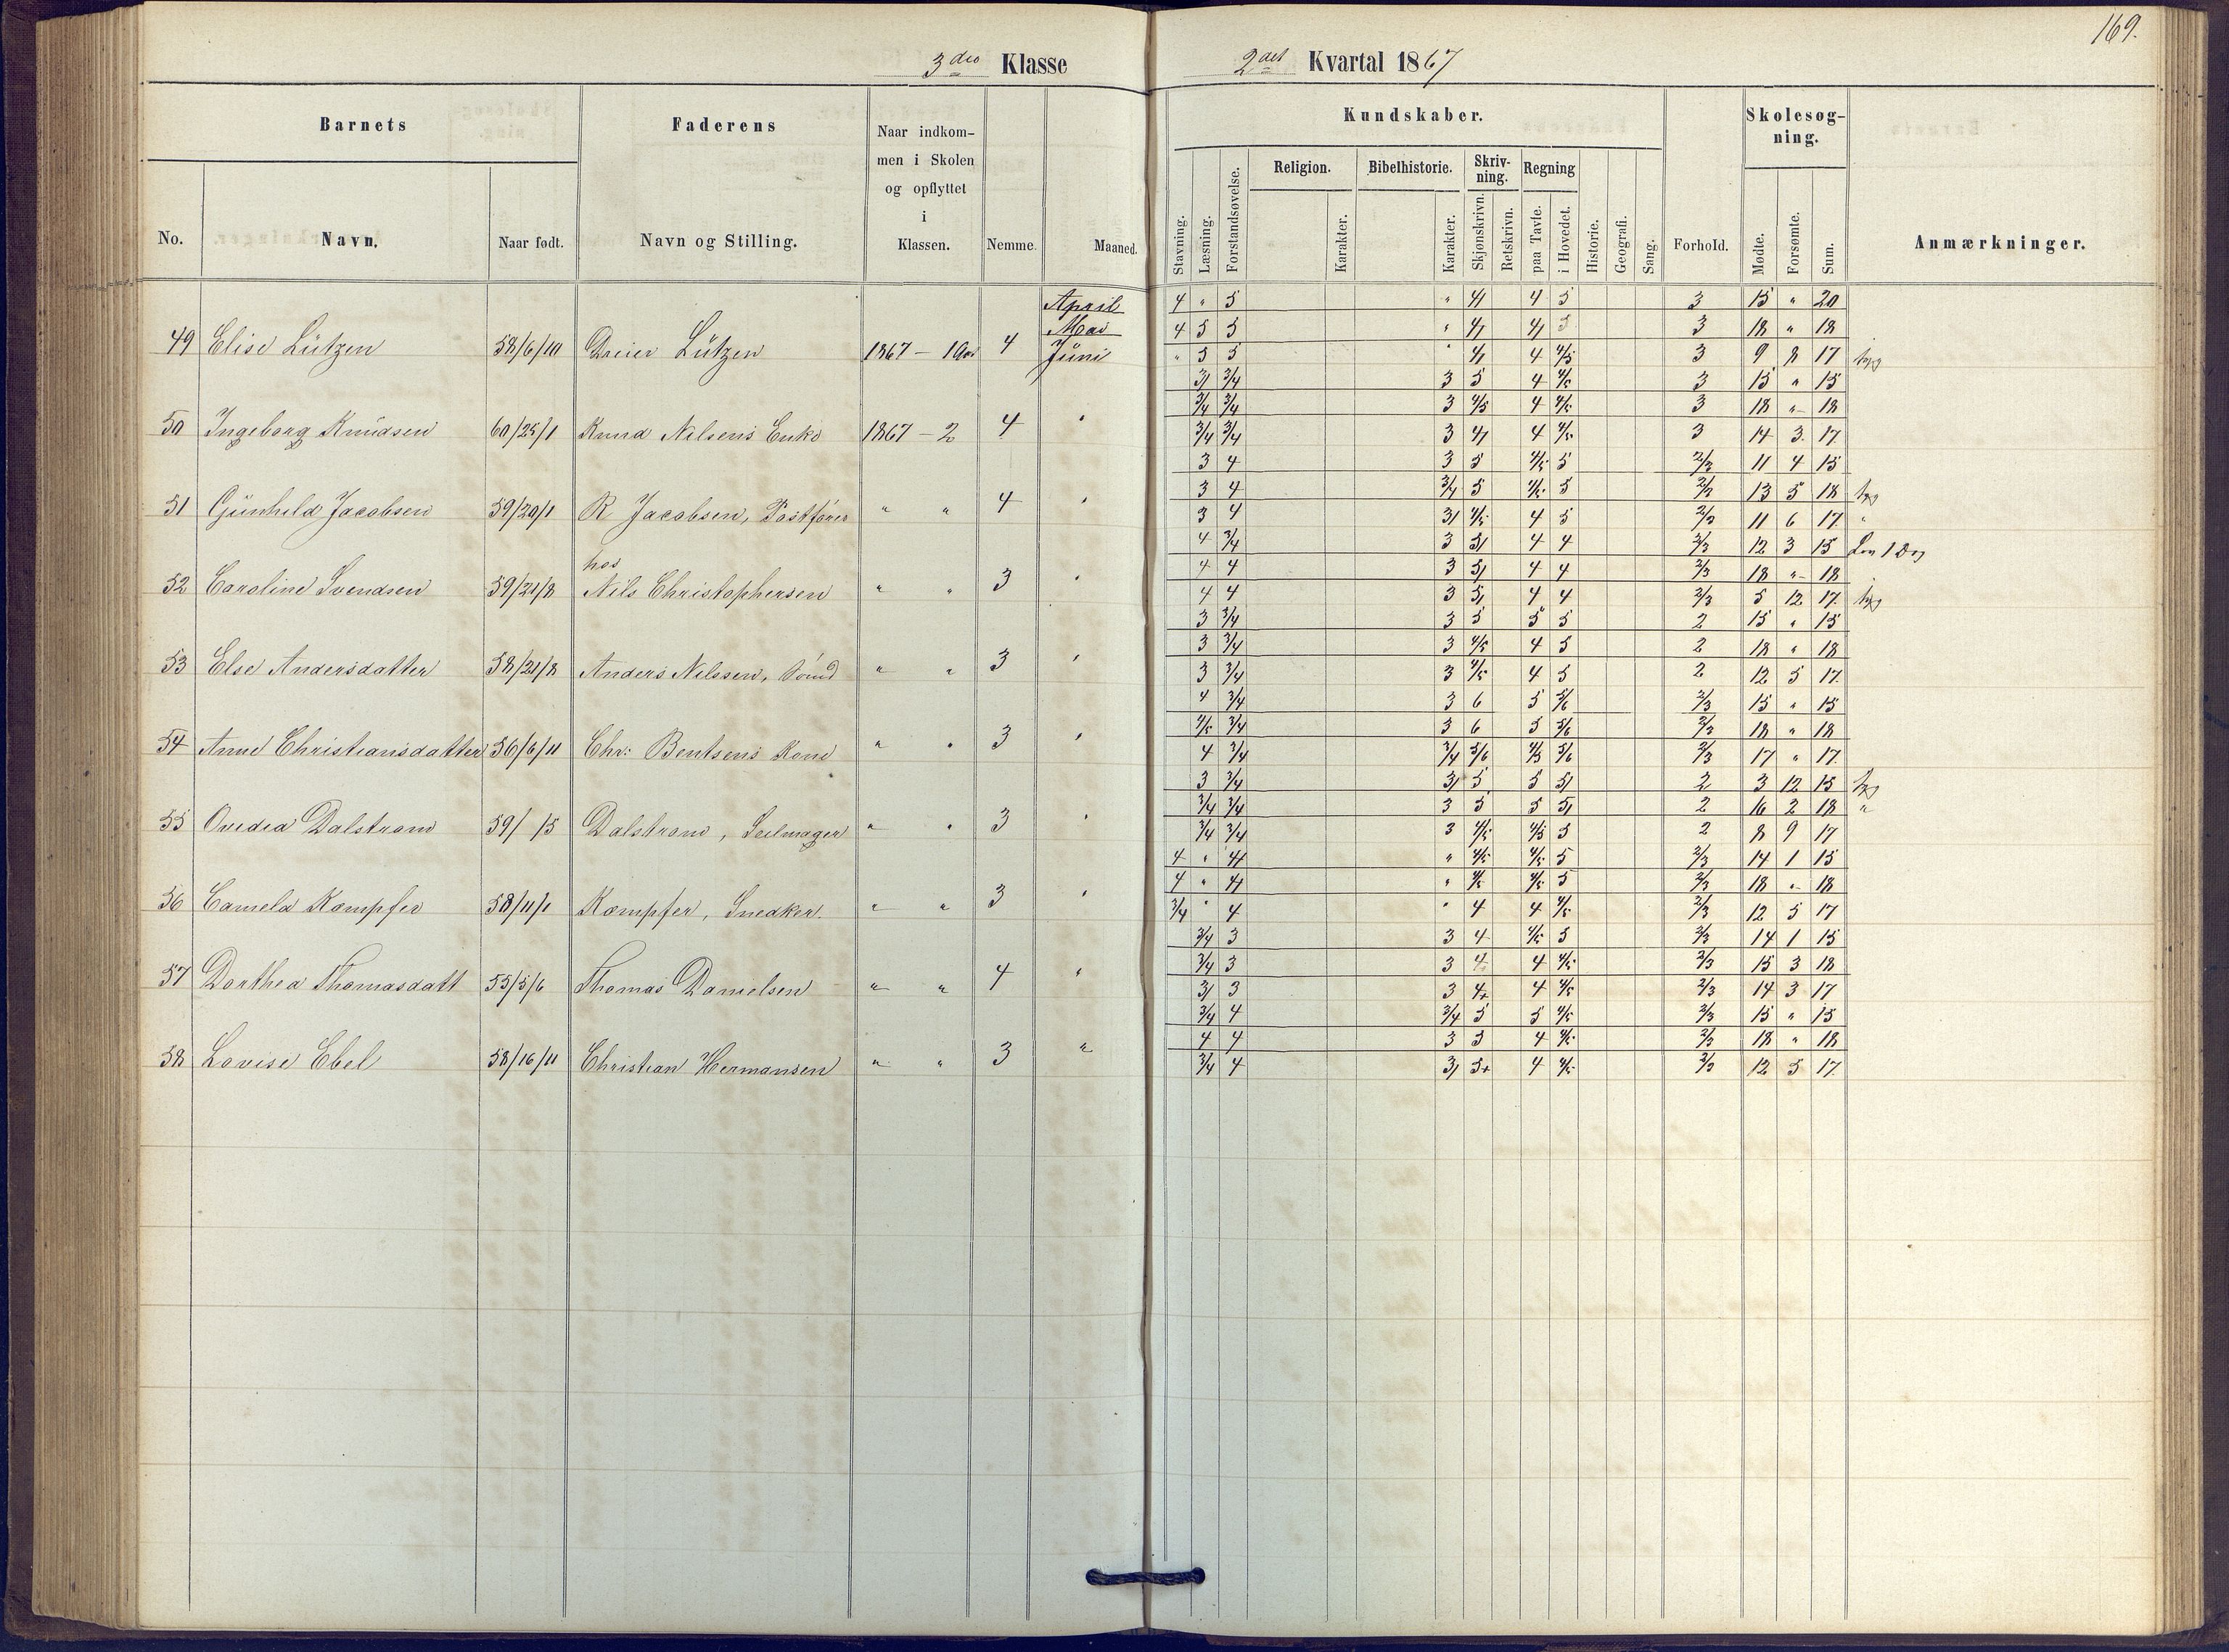 169.
3die Klasse
2det Kvartal 1867
Barnets
No.
Navn.
Naar født.
Faderens
Navn og Stilling.
Naar indkom-
men i Skolen
og opflyttet
i
Klassen.
Nemme.
Maaned.
Kundskaber.
Stavning.
Læsning.
Forstandsøvelse.
Religion.
Karakter.
Bibelhistorie.
Karakter.
Skriv-
ning.
Skjønskrivn.
Retskrivn.
Regning
paa Tavle.
i Hovedet.
Historie.
Geografi.
Sang.
Forhold.
Skolesøg-
ning.
Mødte.
Forsømte.
Sum.
Anmærkninger.
April 4 " 5 " 4/ 4 5 3 15 " 20
Mai 4 5 5 " 4/ 4/ 5 3 18 " 18
49 Elise Lützen 58/6/10 Dreier Lützen 1867 - 4 Juni " 5 5 " 4/ 4 4/5 3 9 8 17 syg
3/ 3/4 3 5 4 4/5 3 15 " 15
3/4 3/4 3 4/5 4 4/5 3 18 " 18
50 Ingeborg Knudsen 60/25/1 Knud Nilsens Enke 1867 - 2 4 " 3/4 3/4 3 4/ 4 4/5 3 14 3 17
3 4 3 5 4/5 5 2/3 11 4 15
3 4 3/4 5 4/5 5 2/3 13 5 18 syg
51 Gunhild Jacobsen 59/20/1 R Jacobsen, Postfører " " 4 " 3 4 3/ 4/5 4 5 2/3 11 6 17 "
4 3/4 3 5/ 4 4 2/3 12 3 15 1 Dag
hos 4 4 3 5/ 4 4 2/3 18 " 18
52 Caroline Svendsen 59/21/8 Nils Christophersen " " 3 " 4 4 3 5/ 4 4 2/3 5 12 17 syg
3 3/4 3 5 5 5 2 15 " 15
3 3/4 3 4/5 4 5 2 18 " 18
53 Else Andersdatter 58/21/8 Anders Nilssen, " " 3 " 3 3/4 3 4/5 4 5 2 12 5 17
4 3/4 3 6 5 5/6 2/3 15 " 15
4/5 3/4 3 6 5 5/6 2/3 18 " 18
54 Anne Christiansdatter 56/6/11 Chr: Bentsens Kone " " 3 " 4 3/4 3/4 5/6 4/5 5/6 2/3 17 " 17
3 3/4 3/ 5 5 5/ 2 3 12 15 syg
3/4 3/4 3 5 5 5/ 2 16 2 18 "
55 Ovedia Dalstrøm 59/ 15 Dalstrøm, Seilmager " " 3 " 3/4 3/4 3 4/5 4/5 5 2 8 9 17
4 " 4/ " 4/5 4/5 5 2/3 14 1 15
4 " 4/ " 4/5 4/5 5 2/3 18 " 18
56 Camela Kæmpfer 58/11/1 Kæmpfer, Snedker. " " 3 " 3/4 " 4 " 4 4 4/5 2/3 12 5 17
3/4 3 3 4 4/5 5 2/3 14 1 15
3/4 3 3 4 4 4/5 2/3 15 3 18
57 Dorthea Thomasdatt 55/5/6 Thomas Danielsen " " 4 " 3/ 3 3 4+ 4 4/5 2/3 14 3 17
3/4 4 3/4 5 5 4/5 2/3 15 " 15
4 4 3 5 4 4/5 2/3 18 " 18
58 Lovise Ebel 58/16/11 Christian Hermansen " " 3 " 3/4 4 3/ 5+ 4 4/5 2/3 12 5 17